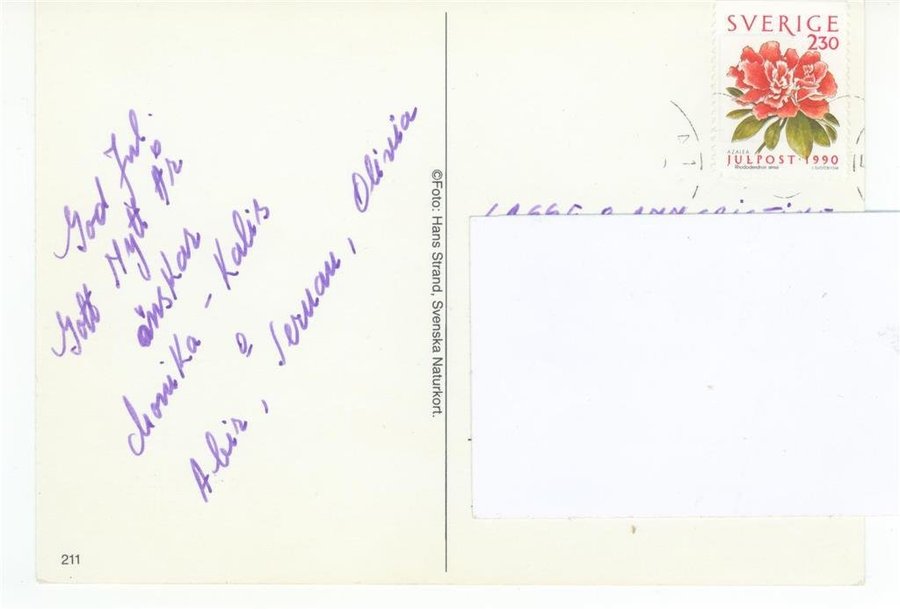 God Jul.
Gott Nytt År
önskar
Monika - Kalis
o
Abir, Sernau, Olivia
©Foto: Hans Strand, Svenska Naturkort.
211
SVERIGE
230
AZALEA
JULPOST·1990
Rhododendron simsii